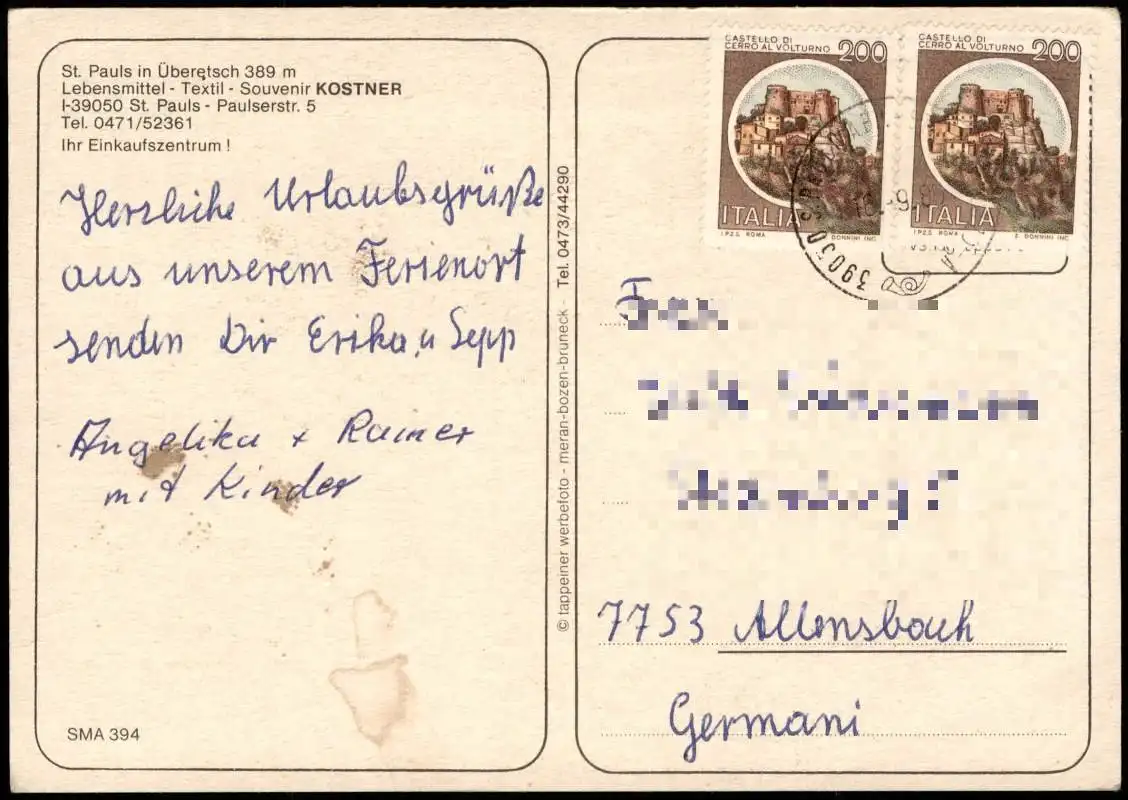 St. Pauls in Überetsch 389 m
Lebensmittel - Textil - Souvenir KOSTNER
I-39050 St. Pauls - Paulserstr. 5
Tel. 0471/52361
Ihr Einkaufszentrum !
Herzliche Urlaubsgrüße
aus unserem Ferienort
senden Dir Erika u Sepp
Angelika + Rainer
mit Kinder
SMA 394
© tappeiner werbefoto - meran-bozen-bruneck - Tel. 0473/44290
CASTELLO DI
CERRO AL VOLTURNO 200
ITALIA
I.P.Z.S. ROMA E. DONNINI INC.
CASTELLO DI
CERRO AL VOLTURNO 200
ITALIA
I.P.Z.S. ROMA E. DONNINI INC.
7753 Allensbach
Germani